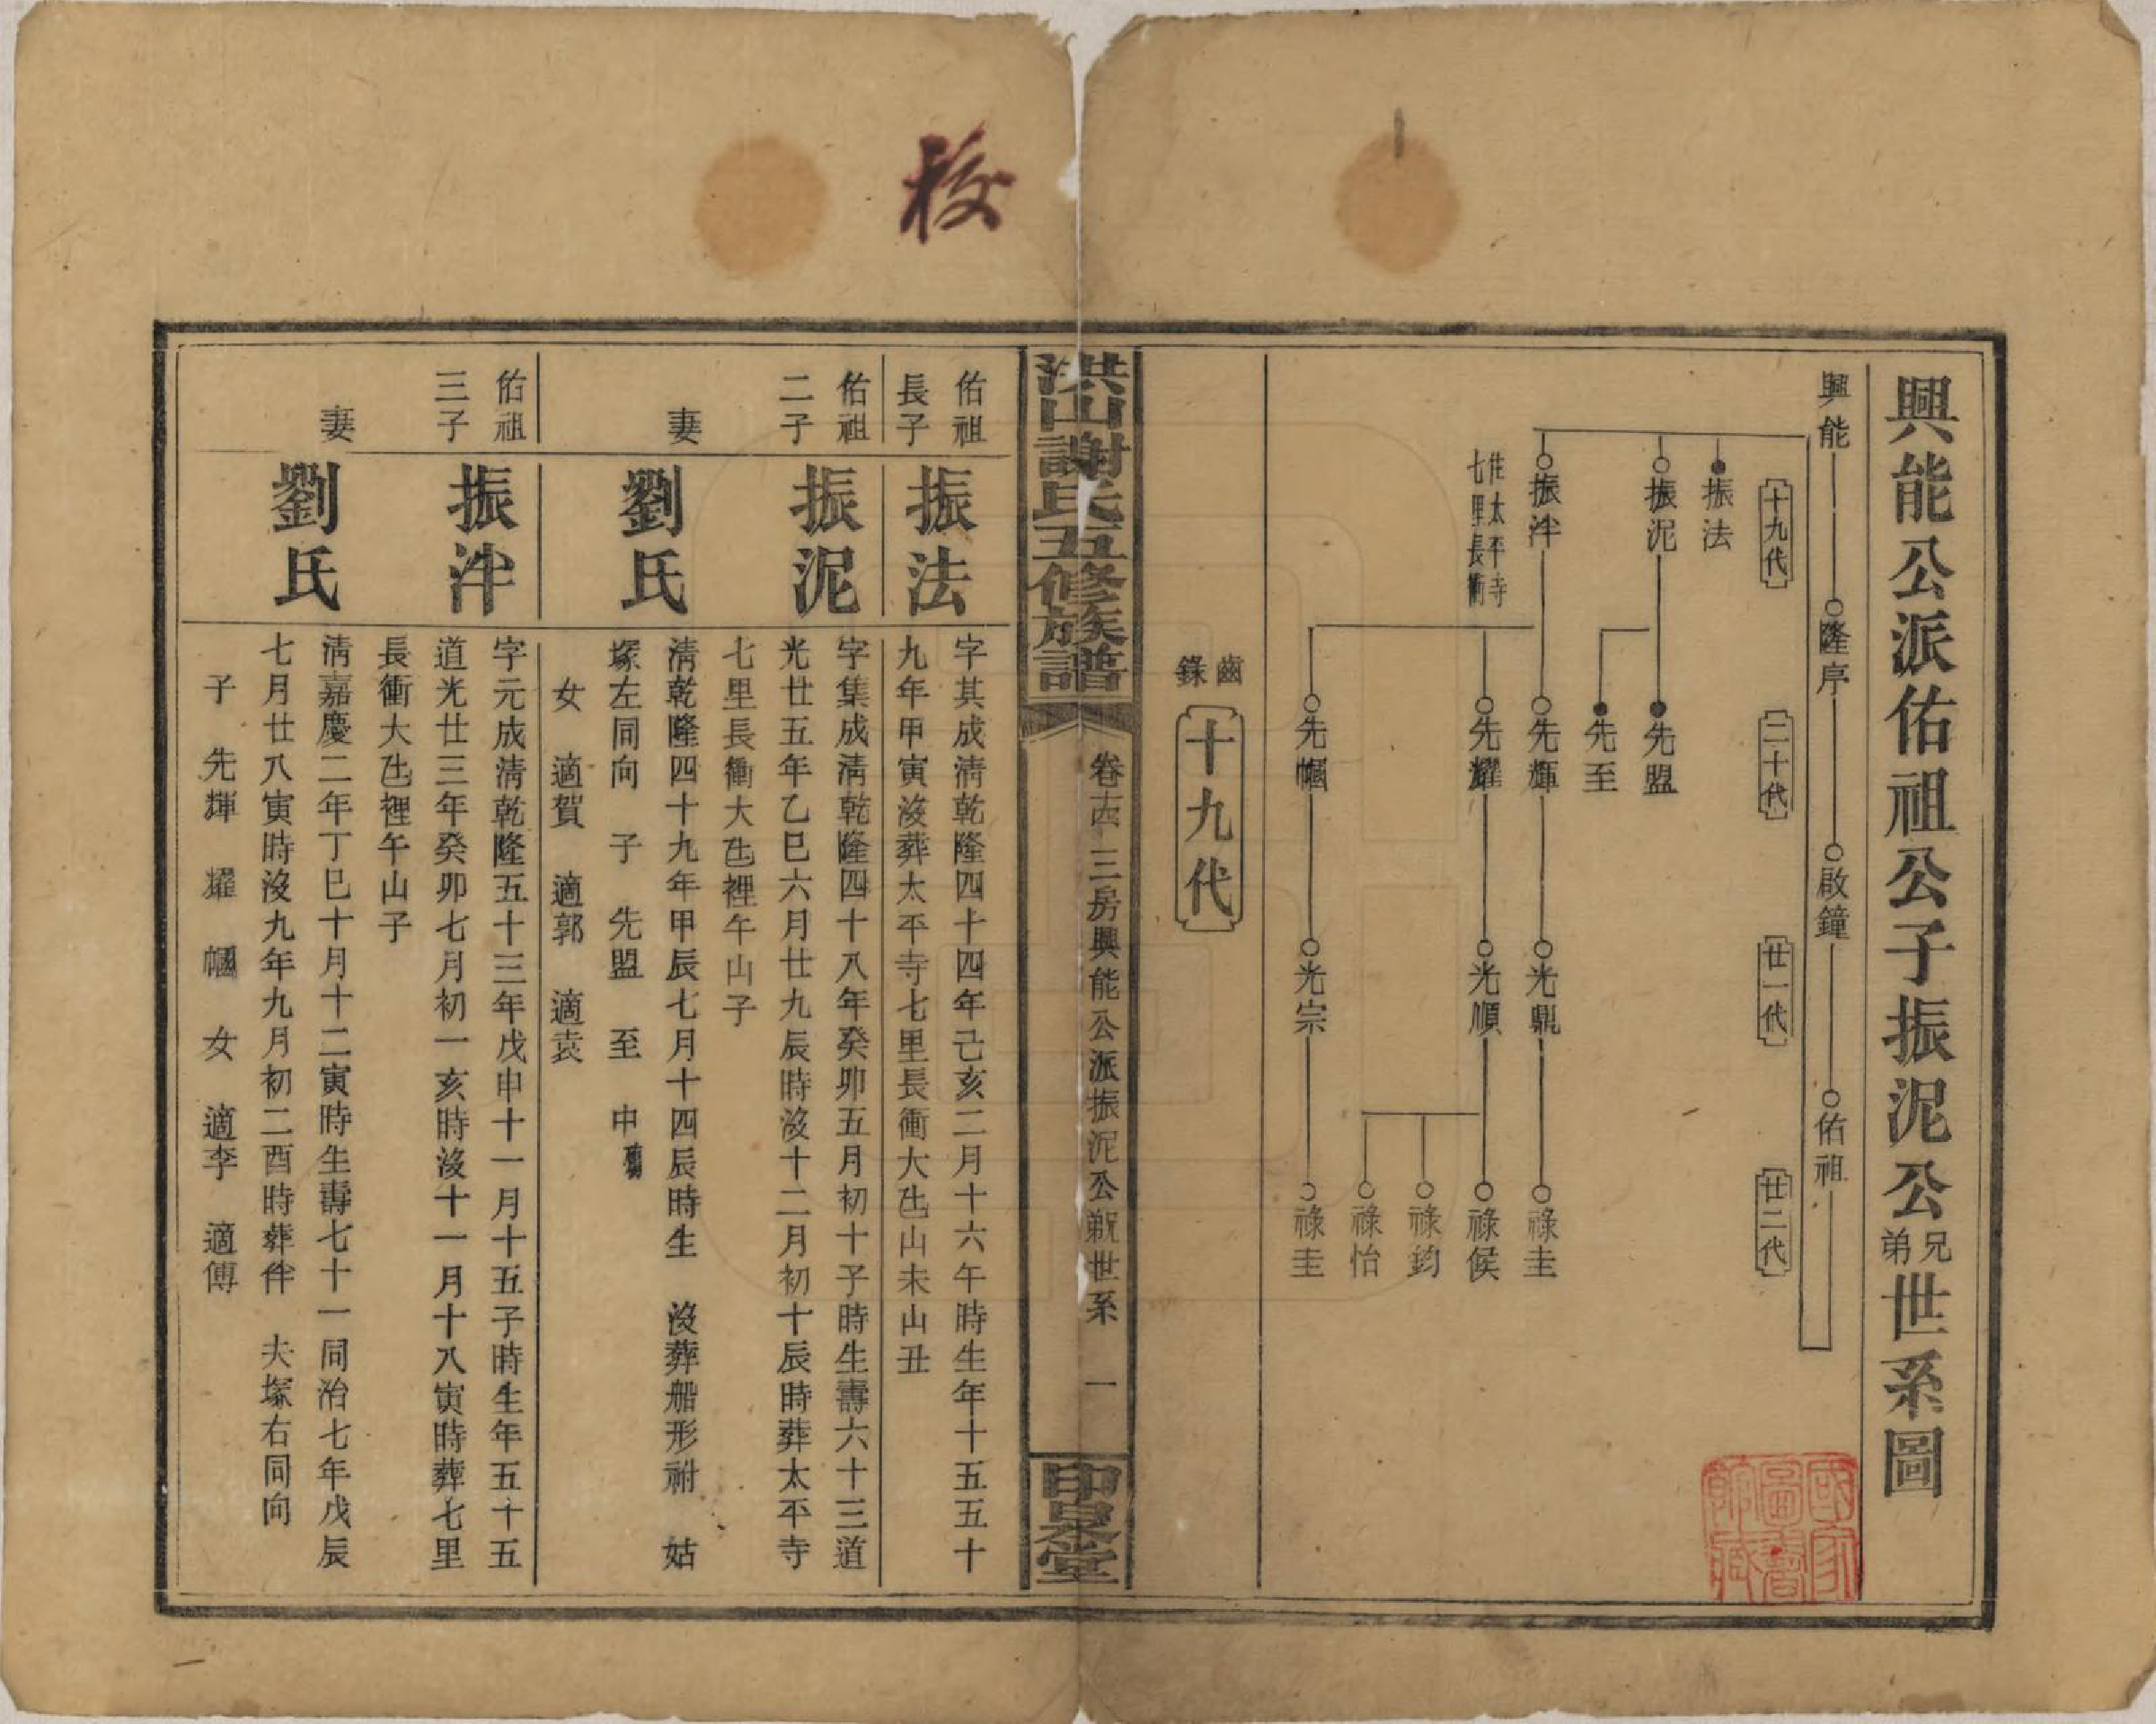 校
興能公派佑祖公子振泥公兄弟世系圖
興能
隆序
啟鐘
佑祖
十九代
二十代
廿一代
廿二代
振法
振泥
先盟
先至
振泮
住太平寺
七里長衝
先輝
光鼎
祿圭
先耀
光順
祿侯
祿鈞
祿怡
先幗
光宗
祿圭
齒錄
十九代
洪山謝氏五修族譜
卷十四
三房興能公派振泥公世系
一
印泉堂
佑祖長子
振法
字其成淸乾隆四十四年己亥二月十六午時生年十五五十
九年甲寅沒葬太平寺七里長衝大凼山未山丑
佑祖二子
振泥
字集成淸乾隆四十八年癸卯五月初十子時生壽六十三道
光廿五年乙巳六月廿九辰時沒十二月初十辰時葬太平寺
七里長衝大凼裡午山子
妻
劉氏
淸乾隆四十九年甲辰七月十四辰時生 沒葬船形祔 姑
塚左同向 子 先盟 至 申
女 適賀 適郭 適袁
佑祖三子
振泮
字元成淸乾隆五十三年戊申十一月十五子時生年五十五
道光廿三年癸卯七月初一亥時沒十一月十八寅時葬七里
長衝大凼裡午山子
妻
劉氏
淸嘉慶二年丁巳十月十二寅時生壽七十一同治七年戊辰
七月廿八寅時沒九年九月初二酉時葬伴 夫塚右同向
子 先輝 耀 幗 女 適李 適傅
國家圖書館藏